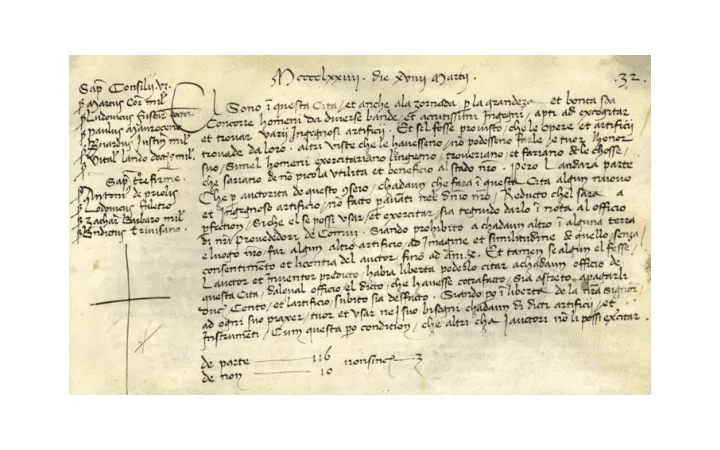 Mcccclxxiiij. die xviiij Martij. 32.
Sap͂. Consilij. vz.
p̱ Marcus Cor͂ mil̄
p̱ Ludovicus
p̱ paulus Mauroceno
mil̄
p̱ Vital lando doct. mil̄
Sap͂. tre firme.
p̱ Antoni͂ de priolis
p̱ Lodovicus
p̱ Zachar͂ Barbaro mil̄
p̱ Bn͂dictus trivisano.
El Sono ī questa Cita, et anche ala zornada p̱ la grandeza et bonta soa
Concorre homeni da diverse bande, et acutissimi Ingegni, apti ad excogitar
et trovar varij Ingegnosi artificij. Et sel fosse provisto, che le opere et artificij
trovade da loro. altri viste che le havesseno, nō podesseno farle, e tuor lhonor
suo, simel homeni exercitariano lingegno, troveriano, et fariano dele chosse,
che sariano de nō picola utilita et beneficio al stado n͂ro. Pero Landara parte
Che p̱ auctorita de questo 9sēio, chadaun che fara ī questa Cita algun nuovo
et Ingegnoso artificio, nō facto p̱avati nel d͂nio n͂ro, Reducto chel sara a
p̱fection, siche el se possi usar, et exercitar, sia tegnudo darlo ī nota al officio
di n͂ri Provededori de Comun. Siando prohibito a chadaun altro ī alguna terra
e luogo n͂ro, far algun altro artificio, ad Imagine et similitudine de quello, senza
consentimēto et licentia del auctor, fino ad ani .x. Et tamen se algun el fesse,
Lauctor et Inventor predicto, habia liberta poderlo citar a chadaun officio de
questa Cita, dal qual officio el dicto, che havesse cotrafacto, sia astreto, a pagarli
duc. Cento, et lartificio, subito sia desfacto. Siando po ī liberta de la n͂ra Signor͂
ad ogni suo piaxer, tuor et usar ne i suo bisogni chadaun di dicti artificij, et
Instrumēti, Cum questa po condition, che altri cha i auctori nō li possi exc͂itar.
de parte 116 nonsinc͂e 3
de non 10